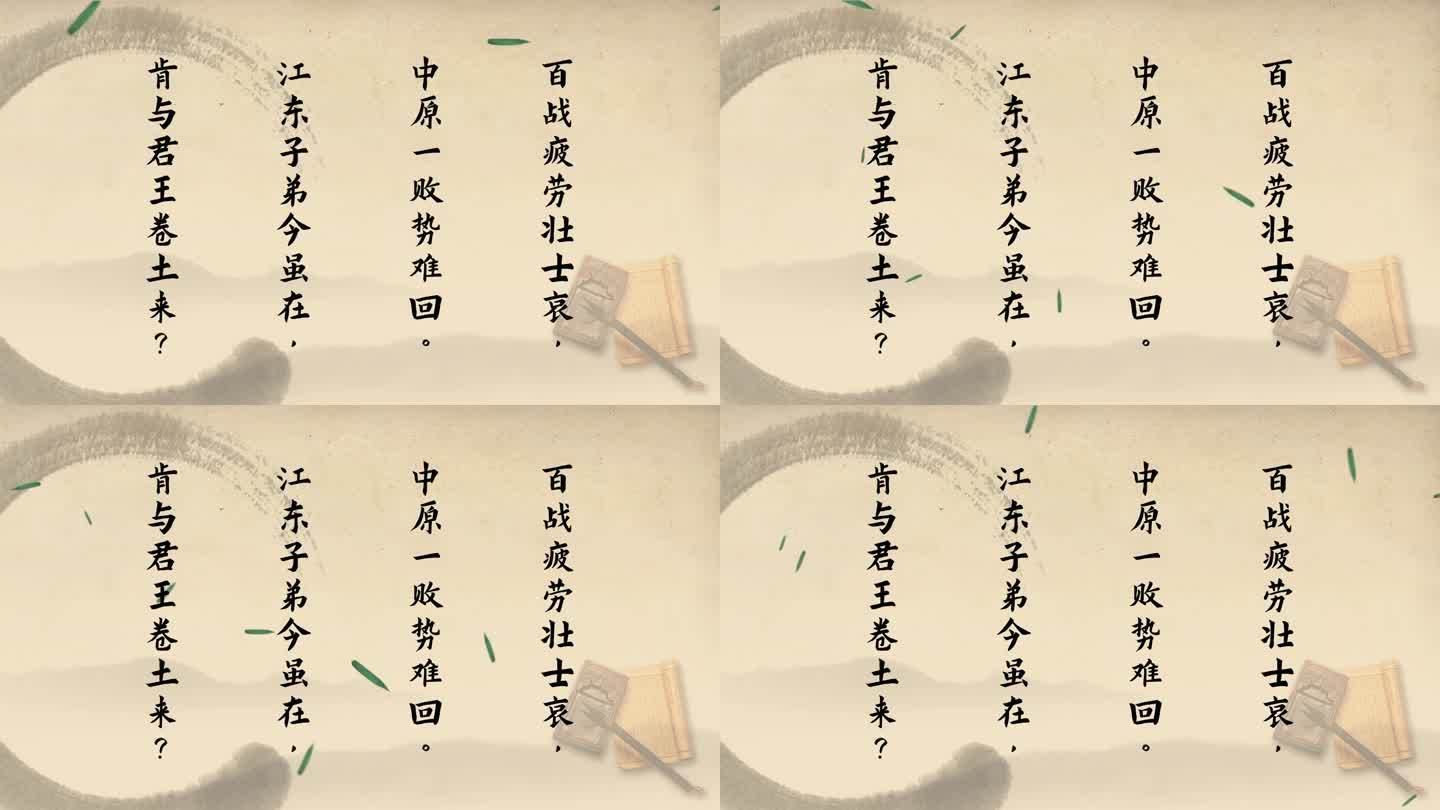 百战疲劳壮士哀，
中原一败势难回。
江东子弟今虽在，
肯与君王卷土来？
百战疲劳壮士哀，
中原一败势难回。
江东子弟今虽在，
肯与君王卷土来？
百战疲劳壮士哀，
中原一败势难回。
江东子弟今虽在，
肯与君王卷土来？
百战疲劳壮士哀，
中原一败势难回。
江东子弟今虽在，
肯与君王卷土来？